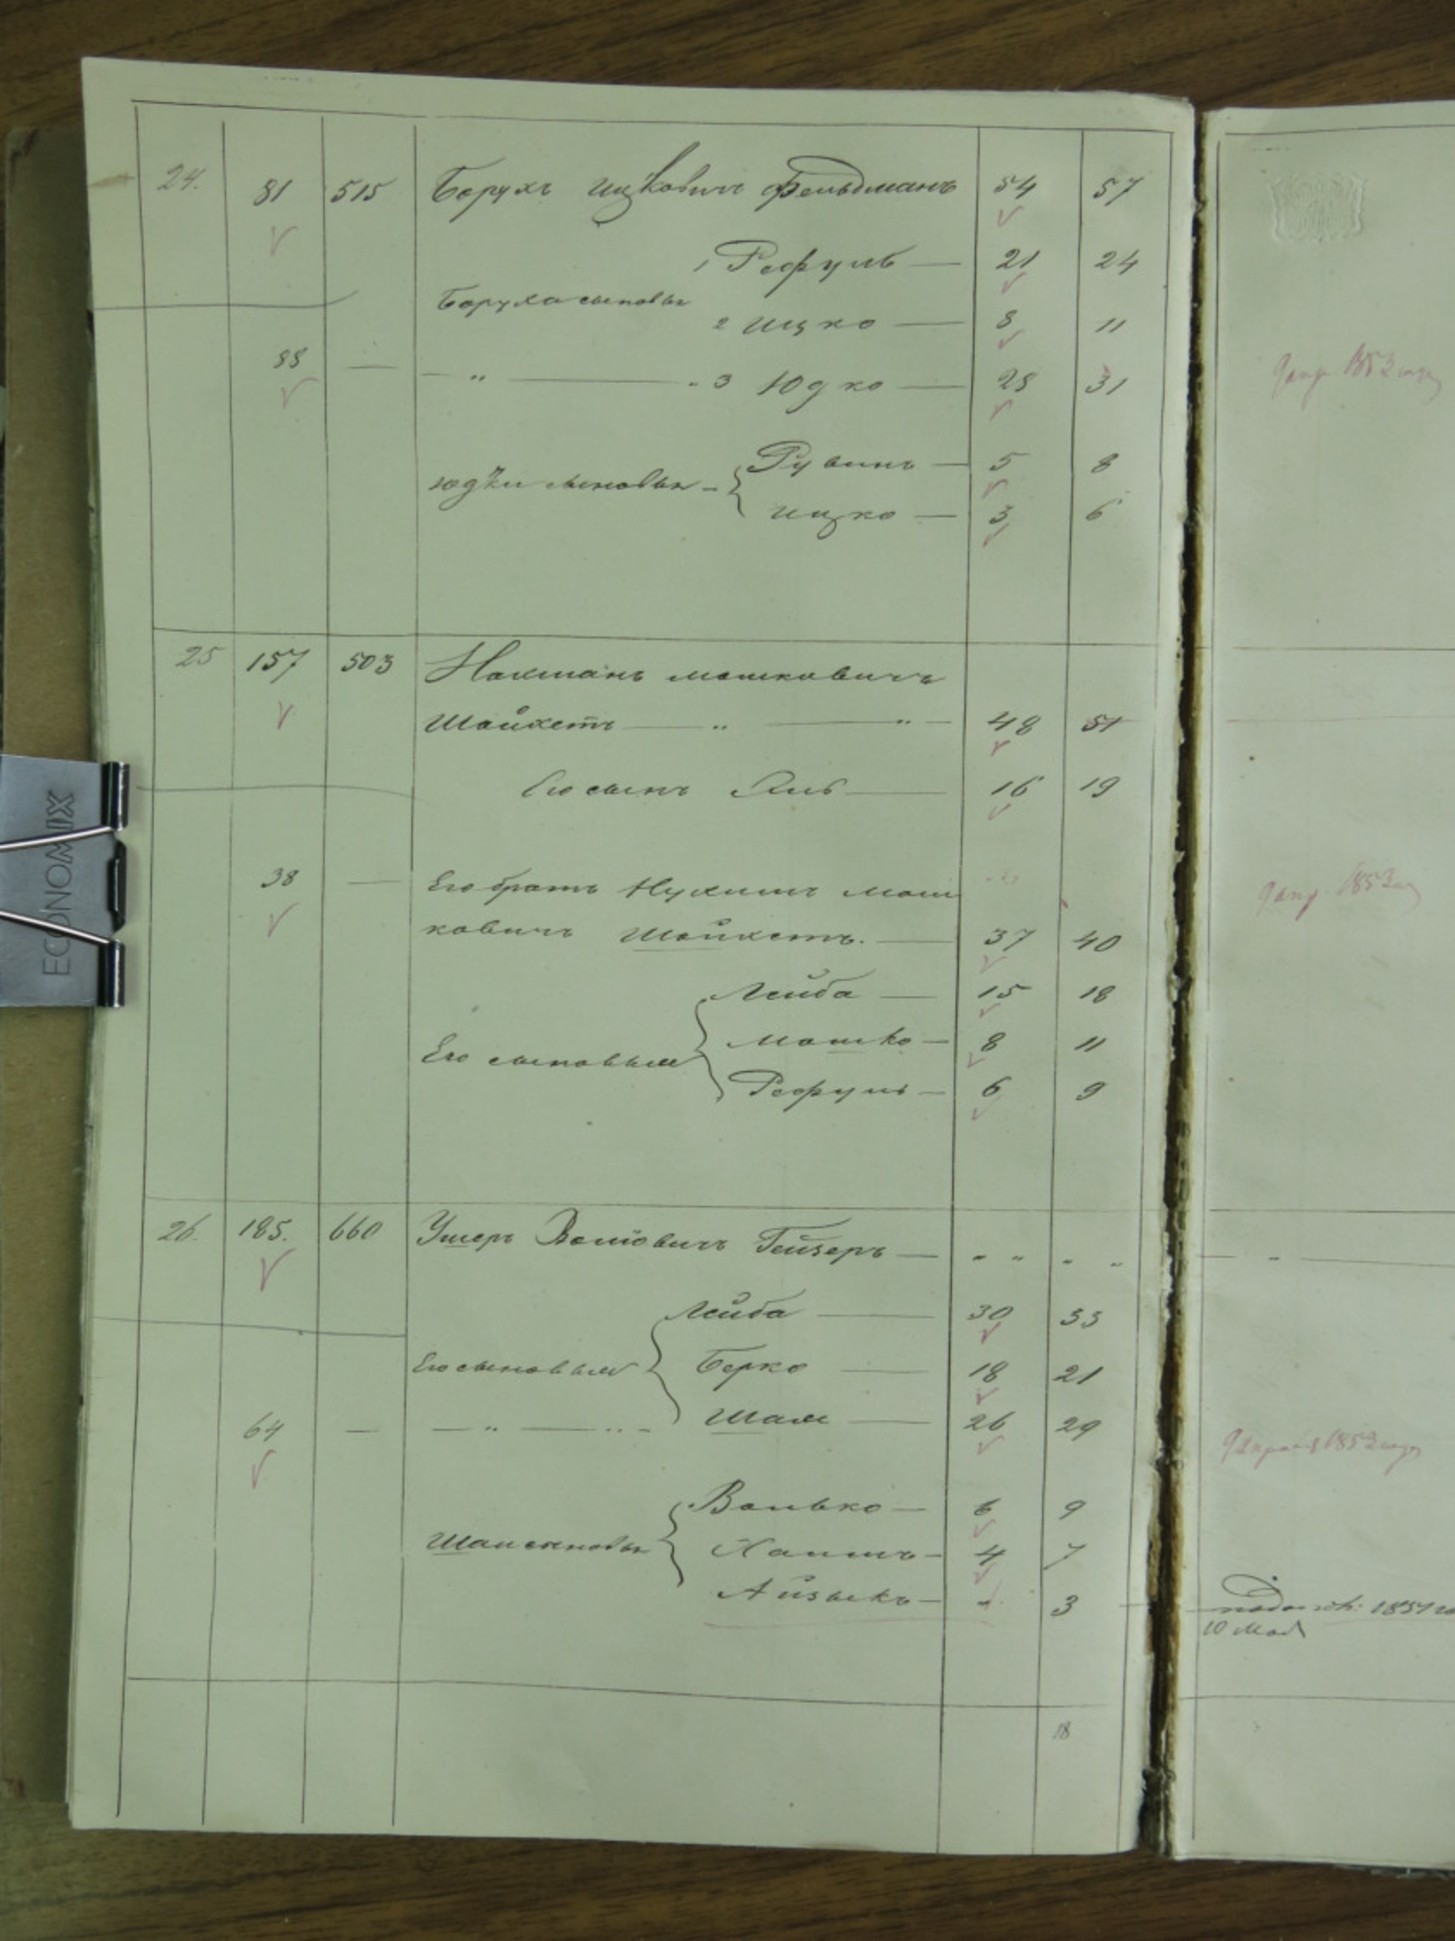 24. 81 515 Борухъ Ицковичъ Фельдманъ 54 57
1 Рефуль 21 24
Боруха сыновья
2 Ицко 8 11
88 — — „ — 3 Юдко — 28 31
Рувинъ — 5 8
Юдки сыновья —
Ицко — 3 6
25 157 503 Нахманъ Мошковичъ
Шойхетъ — „ — „ — 48 51
Его сынъ 16 19
38 — Его братъ Нухимъ Мош
ковичъ Шойхетъ. — 37 40
Лейба — 15 18
Мошко — 8 11
Его сыновья
Рефуль — 6 9
26. 185. 660 Ушеръ Гейзеръ — „ „ „ „
Лейба — 30 33
Его сыновья Берко — 18 21
64 — — „ — „ - Шая — 26 29
Волько — 6 9
Шаи сыновья Хаимъ — 4 7
Айзыкъ — 3
18
1853 года
1853
1853 года
1851
10 Мая
ECONOMIX